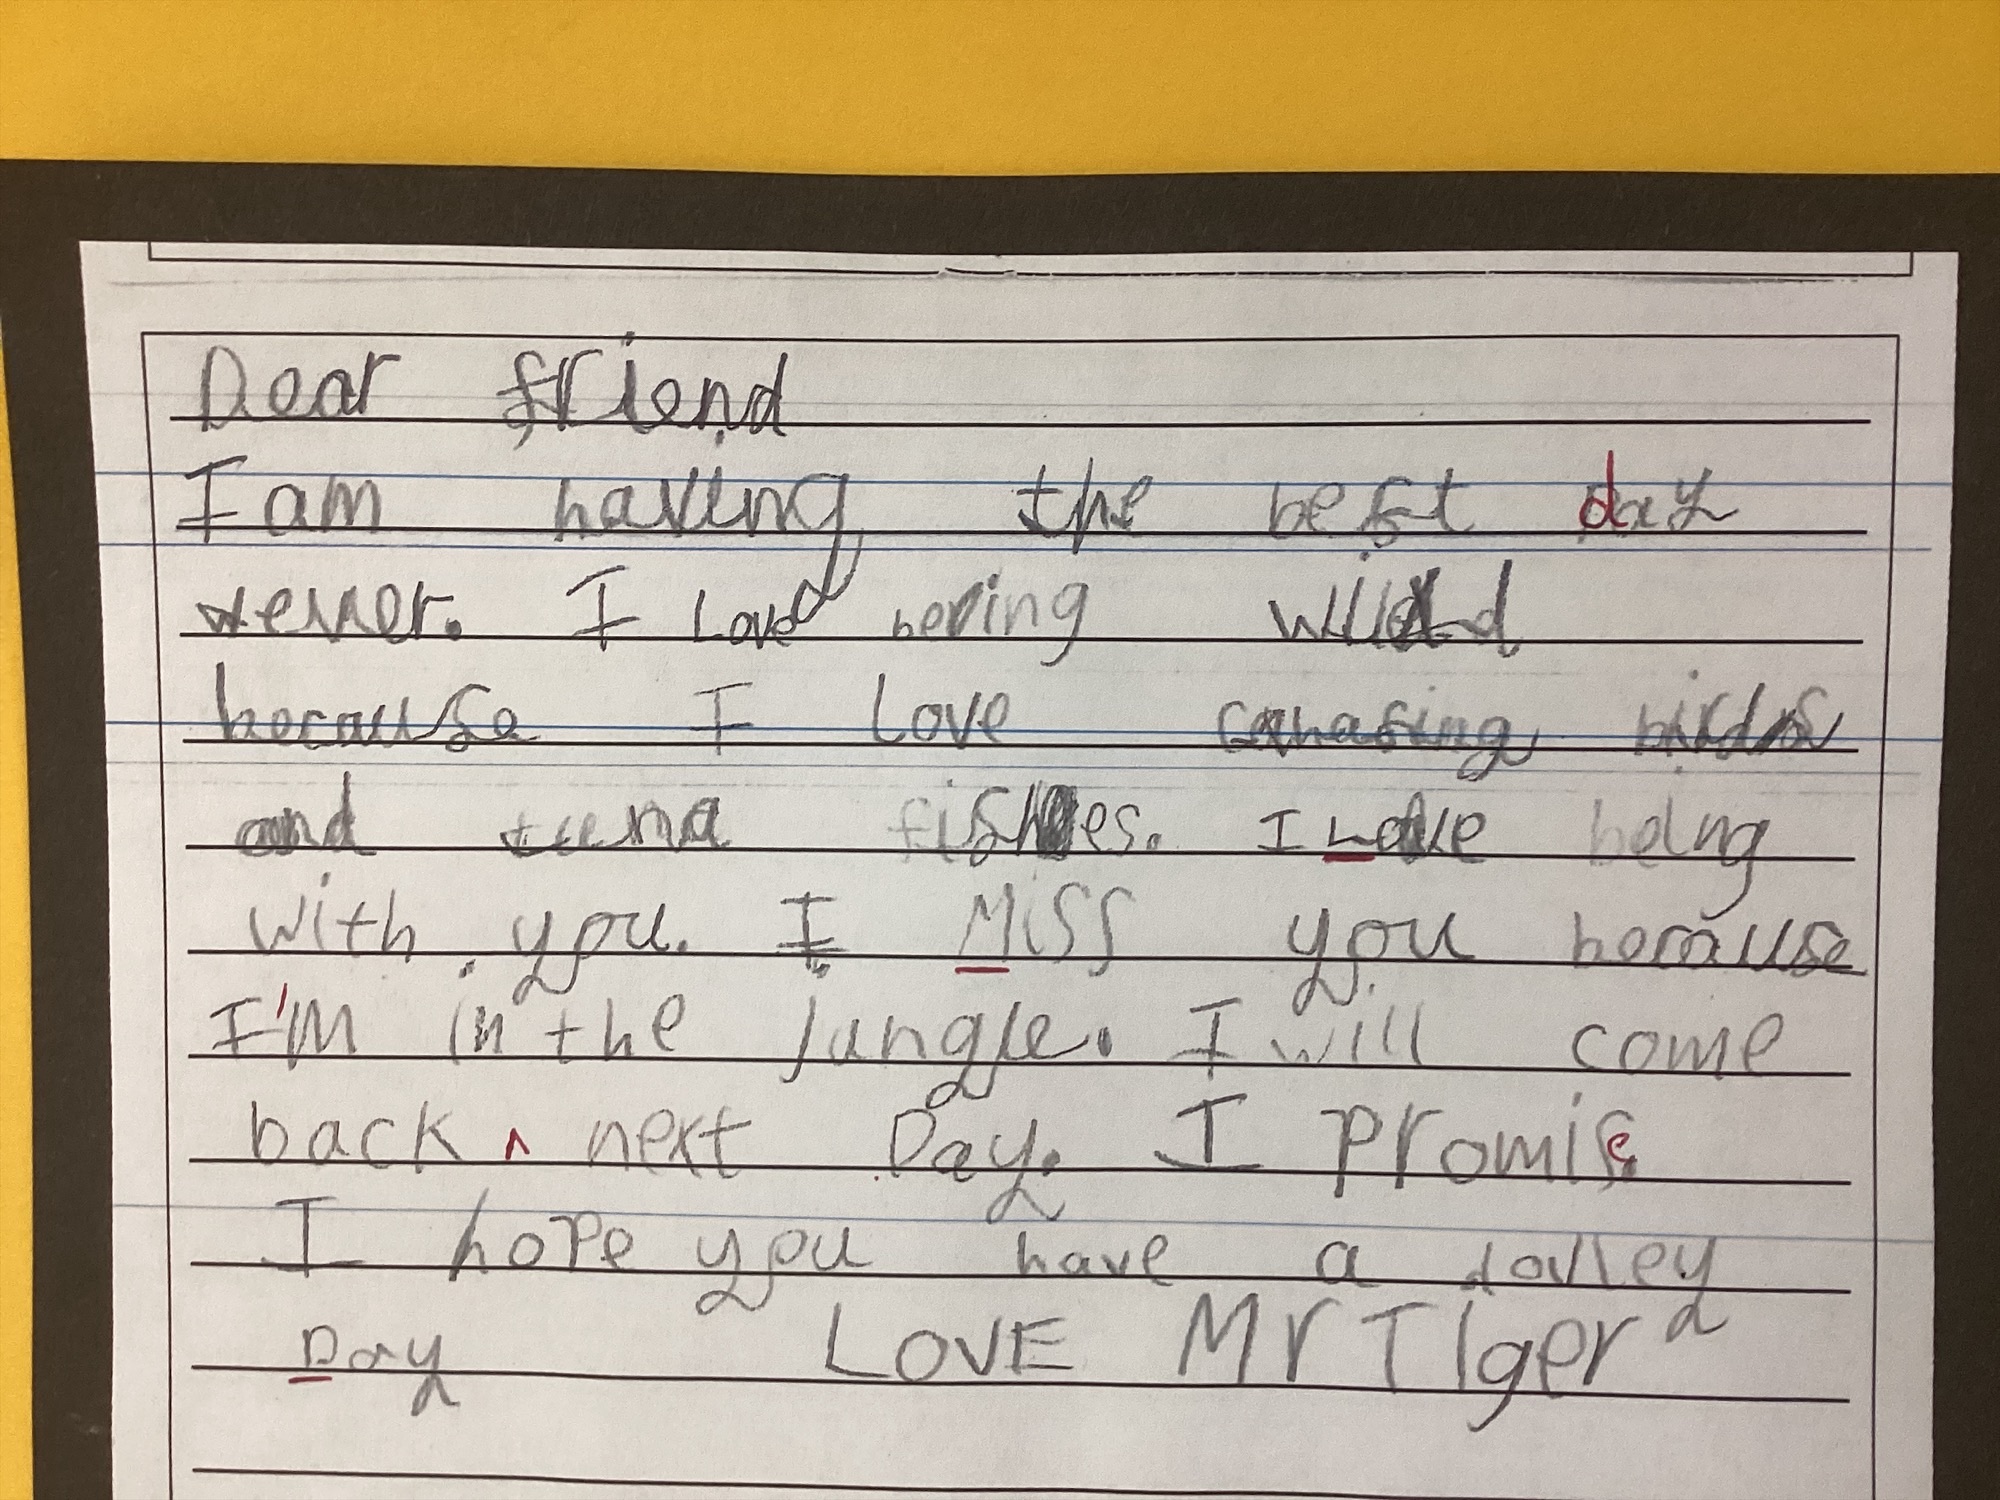 Dear friend
I am having the best day
ever. I Love being wild
because I Love chasing birds
and tuna fishes. I Love being
with you. I Miss you because
I'm in the jungle. I will come
back ^ next Day. I promise
I hope you have a lovley
Day LOVE Mr TIger